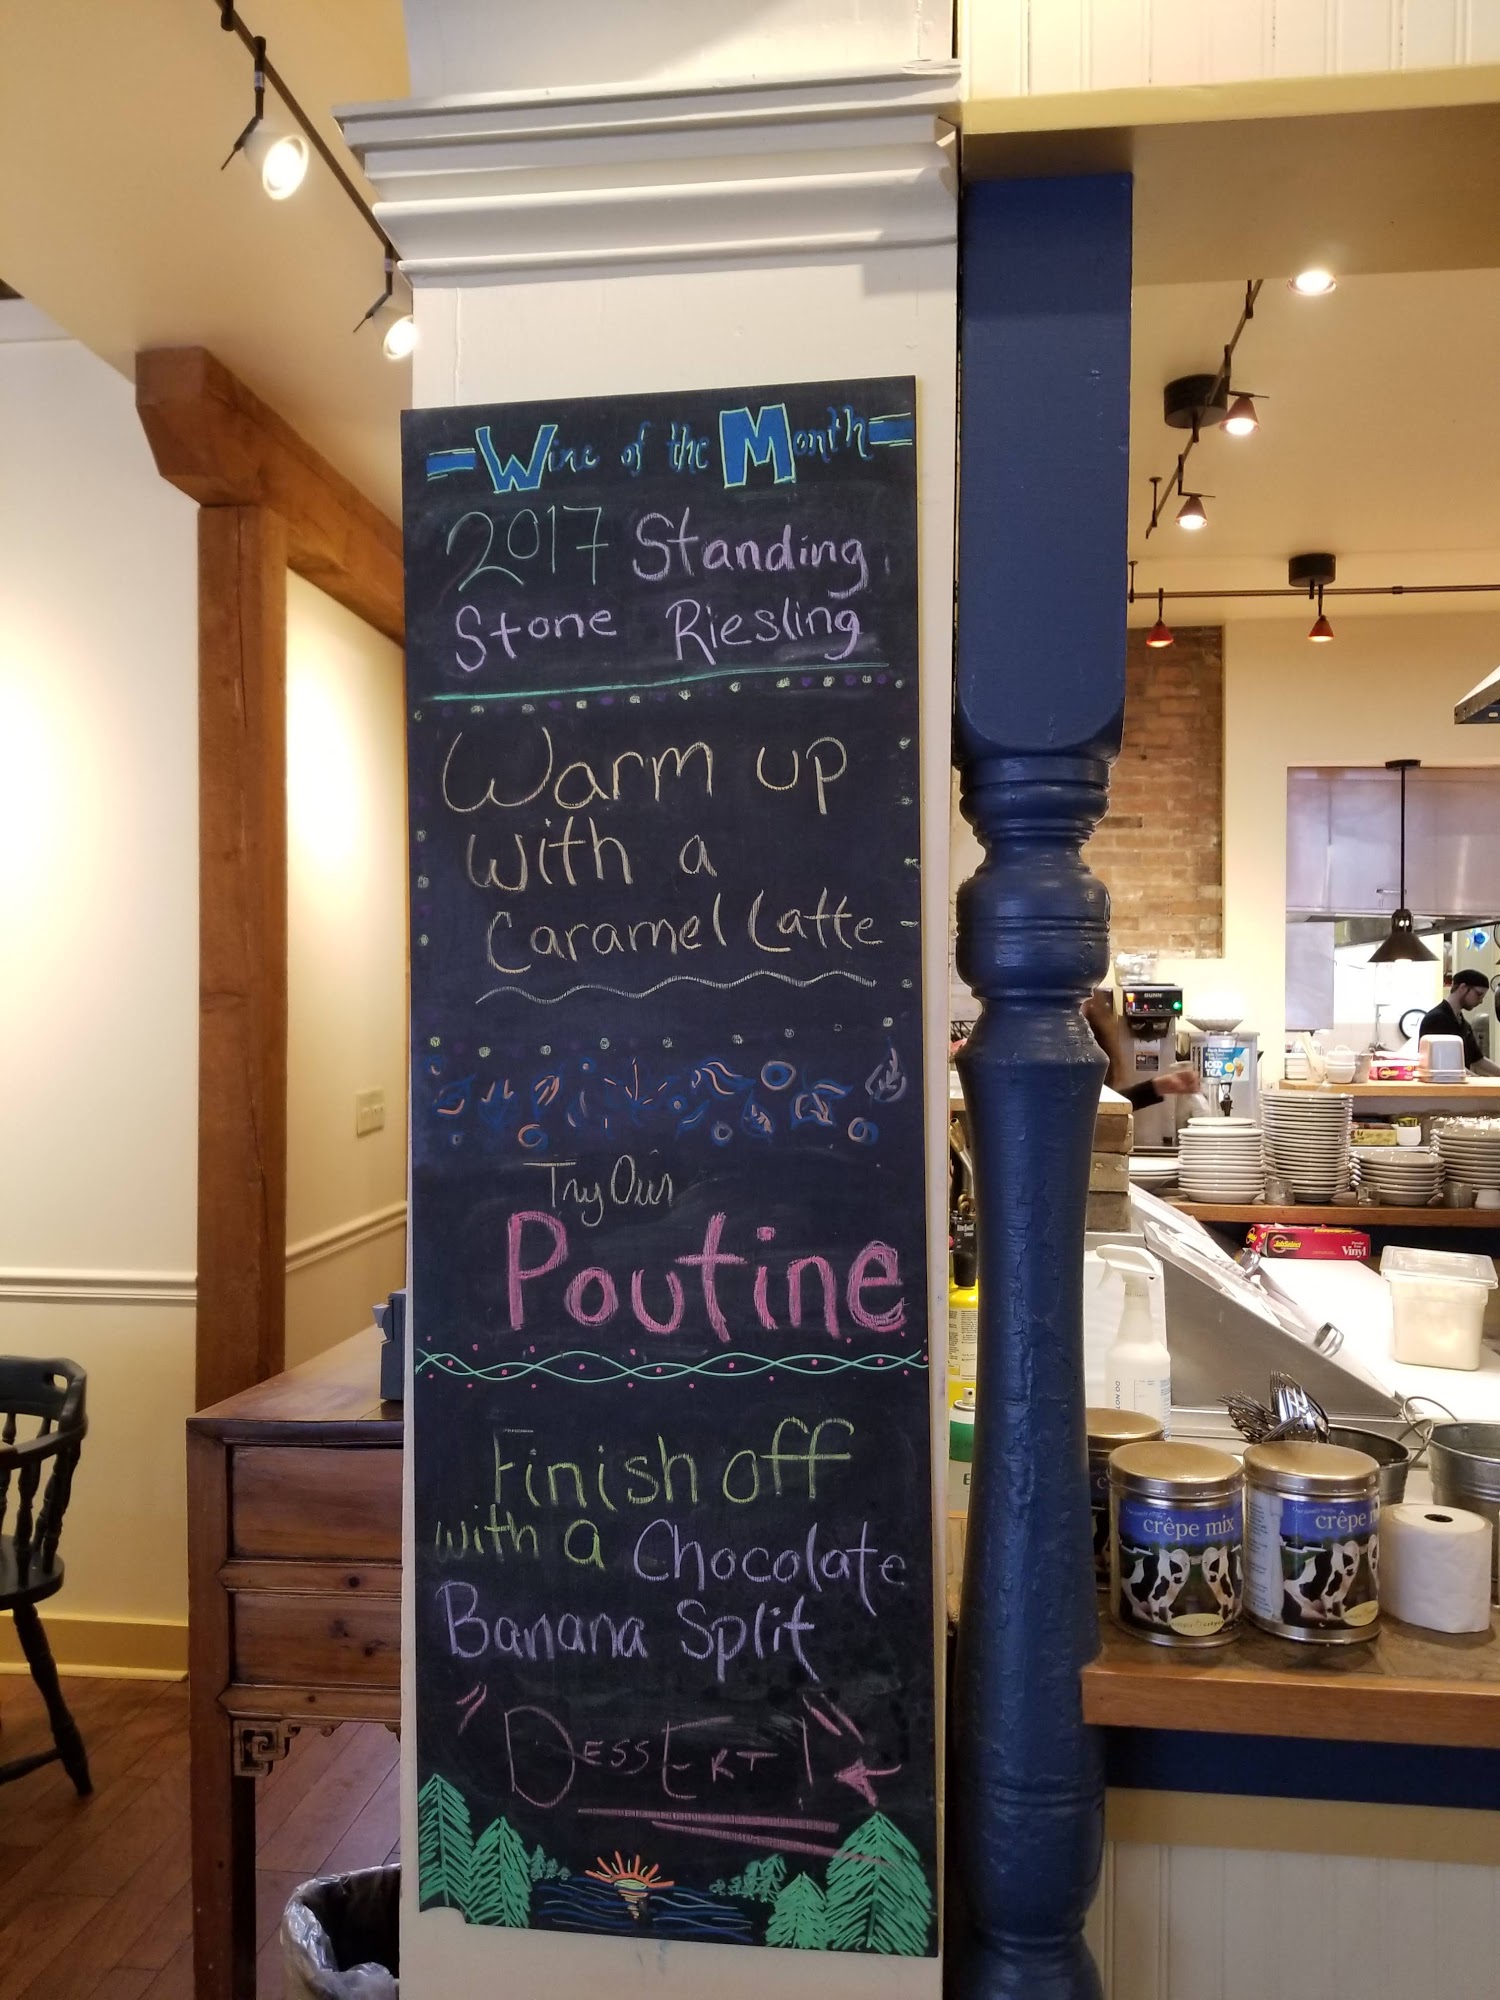 Wine of the Month
2017 Standing
Stone Riesling
Warm up
with a
Caramel Latte
Try Our
Poutine
Finish off
with a Chocolate
Banana Split
DESSERT!
BUNN
ICED
TEA
Vinyl
crêpe mix
crêpe